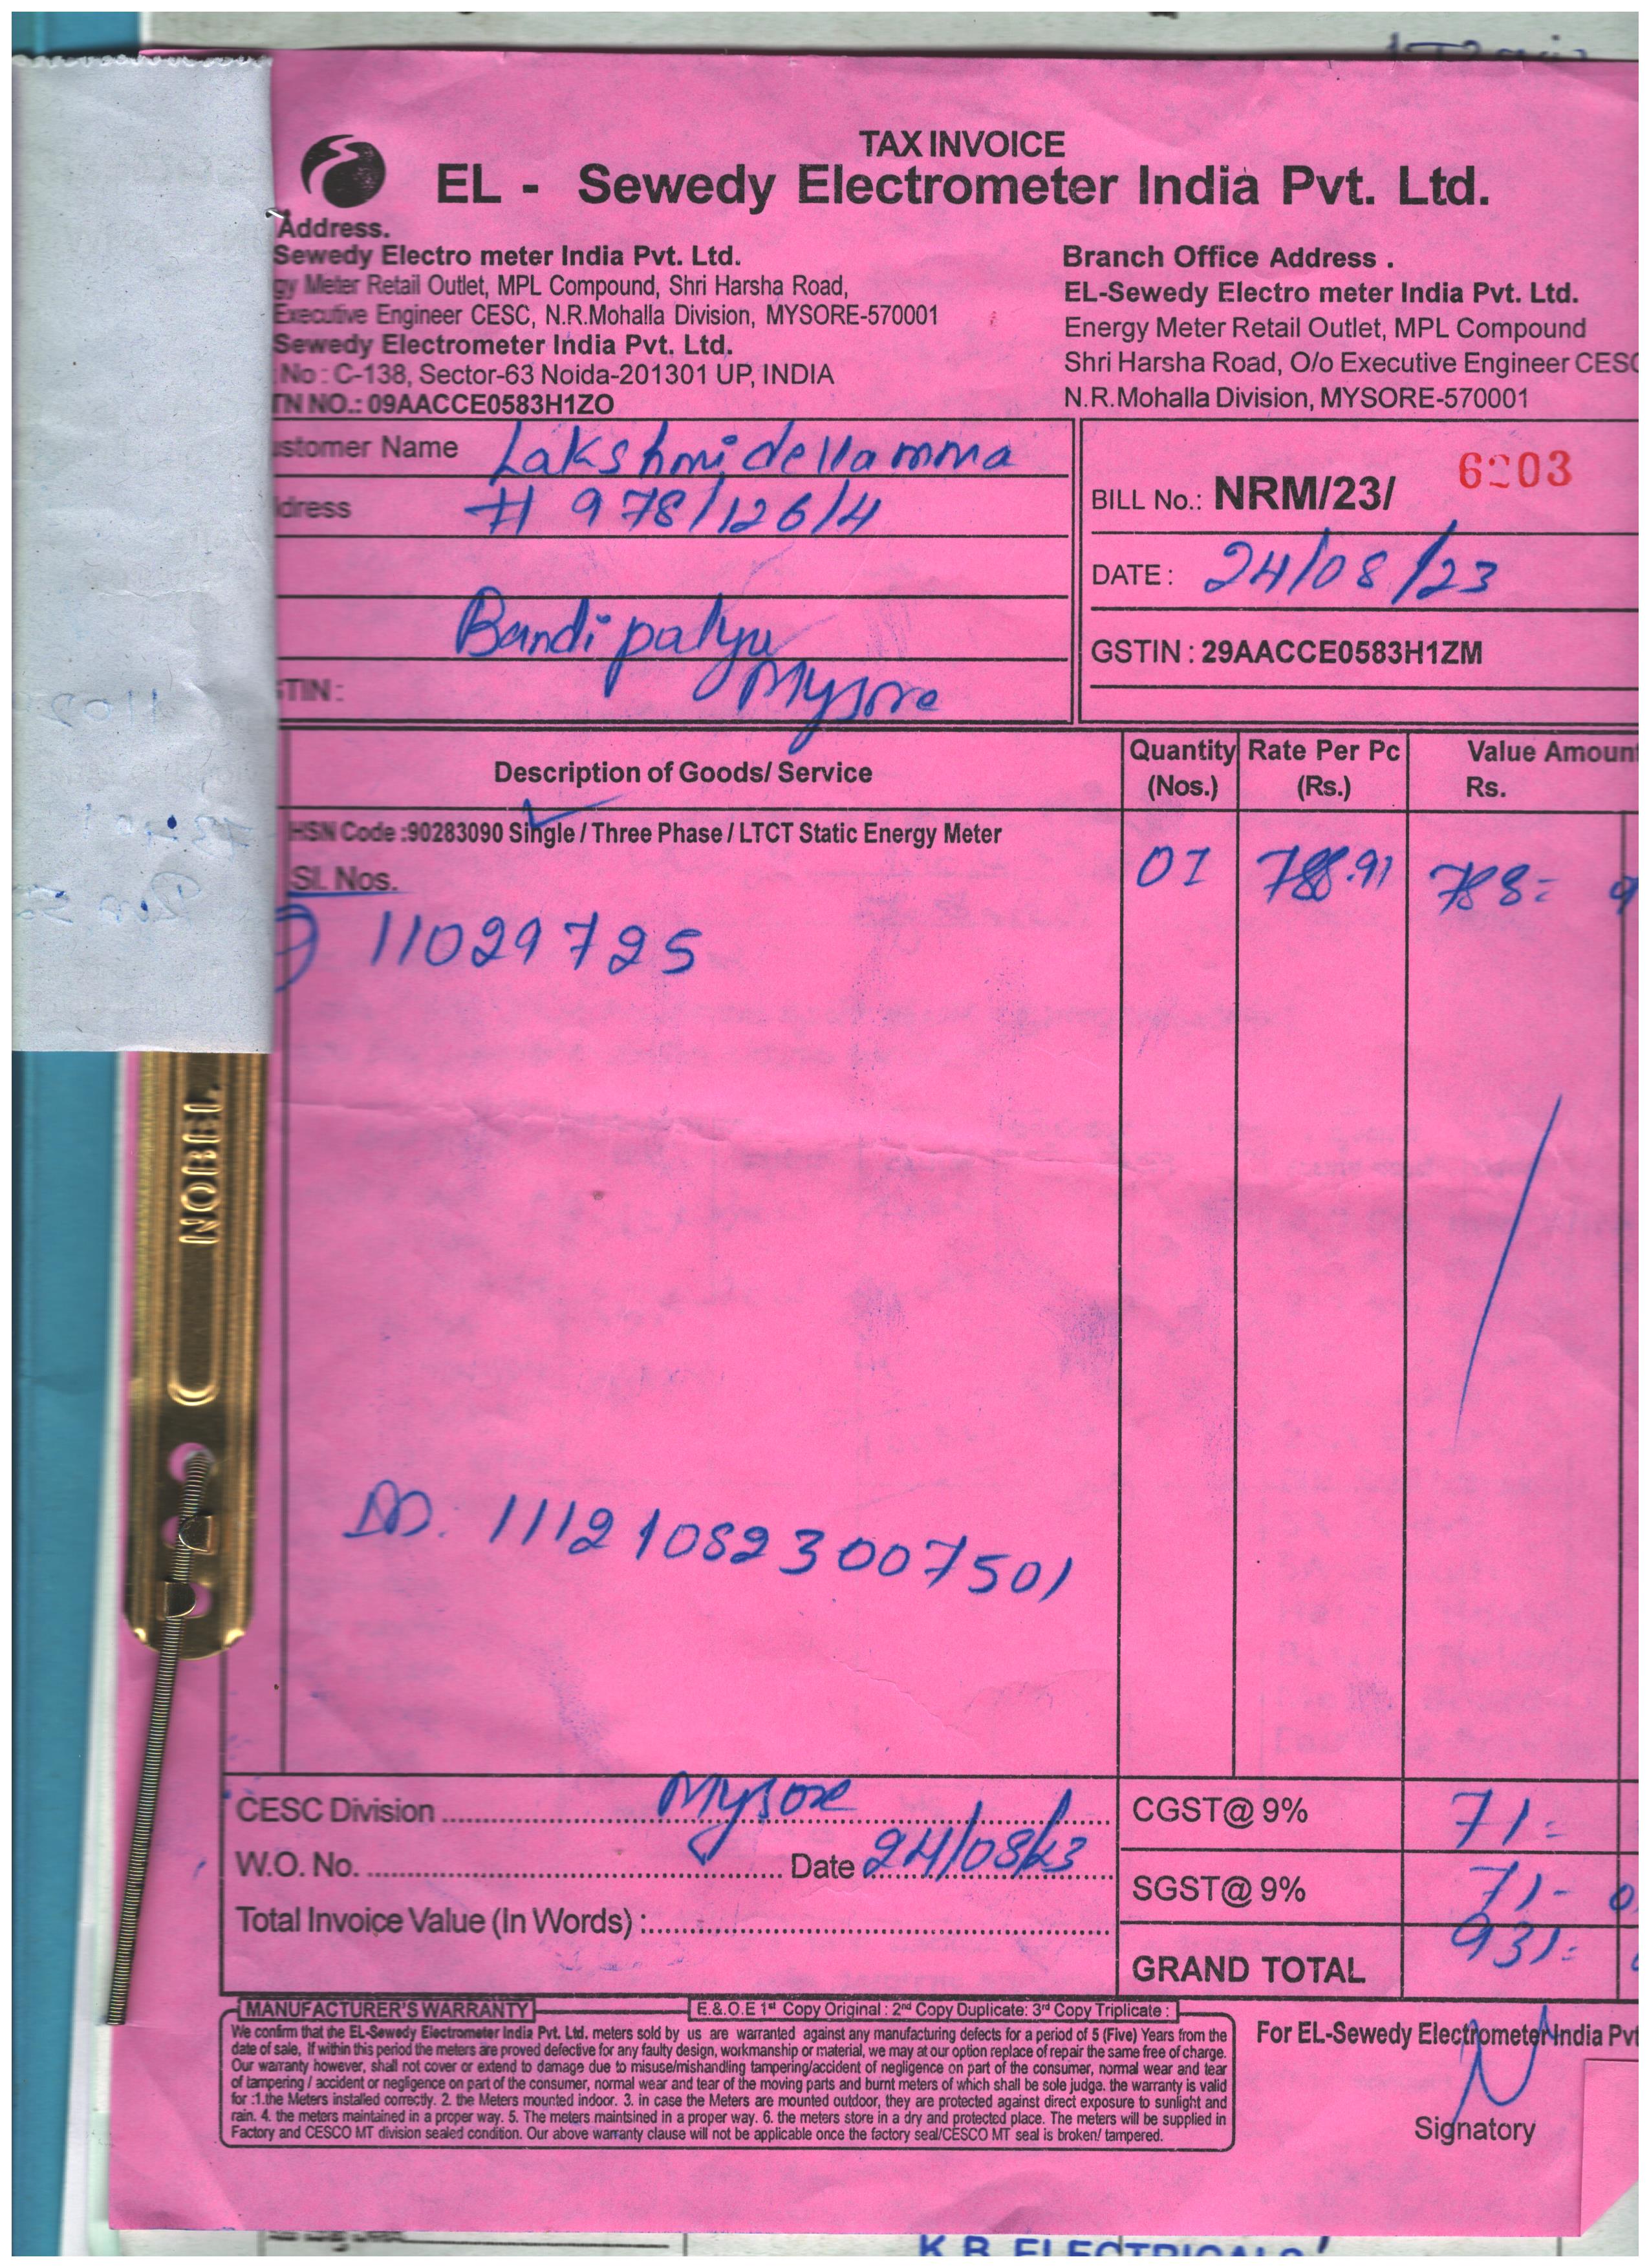 TAX INVOICE
EL - Sewedy Electrometer India Pvt. Ltd.
Address.
Sewedy Electro meter India Pvt. Ltd.
gy Meter Retail Outlet, MPL Compound, Shri Harsha Road,
Executive Engineer CESC, N.R.Mohalla Division, MYSORE-570001
Sewedy Electrometer India Pvt. Ltd.
No : C-138, Sector-63 Noida-201301 UP, INDIA
TN NO.: 09AACCE0583H1ZO
Branch Office Address .
EL-Sewedy Electro meter India Pvt. Ltd.
Energy Meter Retail Outlet, MPL Compound
Shri Harsha Road, O/o Executive Engineer CESC
N.R.Mohalla Division, MYSORE-570001
stomer Name Lakshmidevamma
dress # 978/126/4
Bandipalya
Mysore
TIN :
BILL No.: NRM/23/ 6203
DATE : 24/08/23
GSTIN : 29AACCE0583H1ZM
Description of Goods/ Service
Quantity (Nos.)
Rate Per Pc (Rs.)
Value Amount Rs.
HSN Code :90283090 Single / Three Phase / LTCT Static Energy Meter
Sl. Nos.
01 788.91 788= 9
11029725
DD: 111210823007501
NOBEL
CESC Division Mysore
W.O. No. Date 24/08/23
Total Invoice Value (In Words) :
CGST@ 9% 71=
SGST@ 9% 71- 0
GRAND TOTAL 931=
MANUFACTURER'S WARRANTY
E.&.O.E 1st Copy Original : 2nd Copy Duplicate: 3rd Copy Triplicate :
We confirm that the EL-Sewedy Electrometer India Pvt. Ltd. meters sold by us are warranted against any manufacturing defects for a period of 5 (Five) Years from the
date of sale, If within this period the meters are proved defective for any faulty design, workmanship or material, we may at our option replace of repair the same free of charge.
Our warranty however, shall not cover or extend to damage due to misuse/mishandling tampering/accident of negligence on part of the consumer, normal wear and tear
of tampering / accident or negligence on part of the consumer, normal wear and tear of the moving parts and burnt meters of which shall be sole judge. the warranty is valid
for :1.the Meters installed correctly. 2. the Meters mounted indoor. 3. in case the Meters are mounted outdoor, they are protected against direct exposure to sunlight and
rain. 4. the meters maintained in a proper way. 5. The meters maintsined in a proper way. 6. the meters store in a dry and protected place. The meters will be supplied in
Factory and CESCO MT division sealed condition. Our above warranty clause will not be applicable once the factory seal/CESCO MT seal is broken/ tampered.
For EL-Sewedy Electrometer India Pvt
Signatory
K.B ELECTRICALS